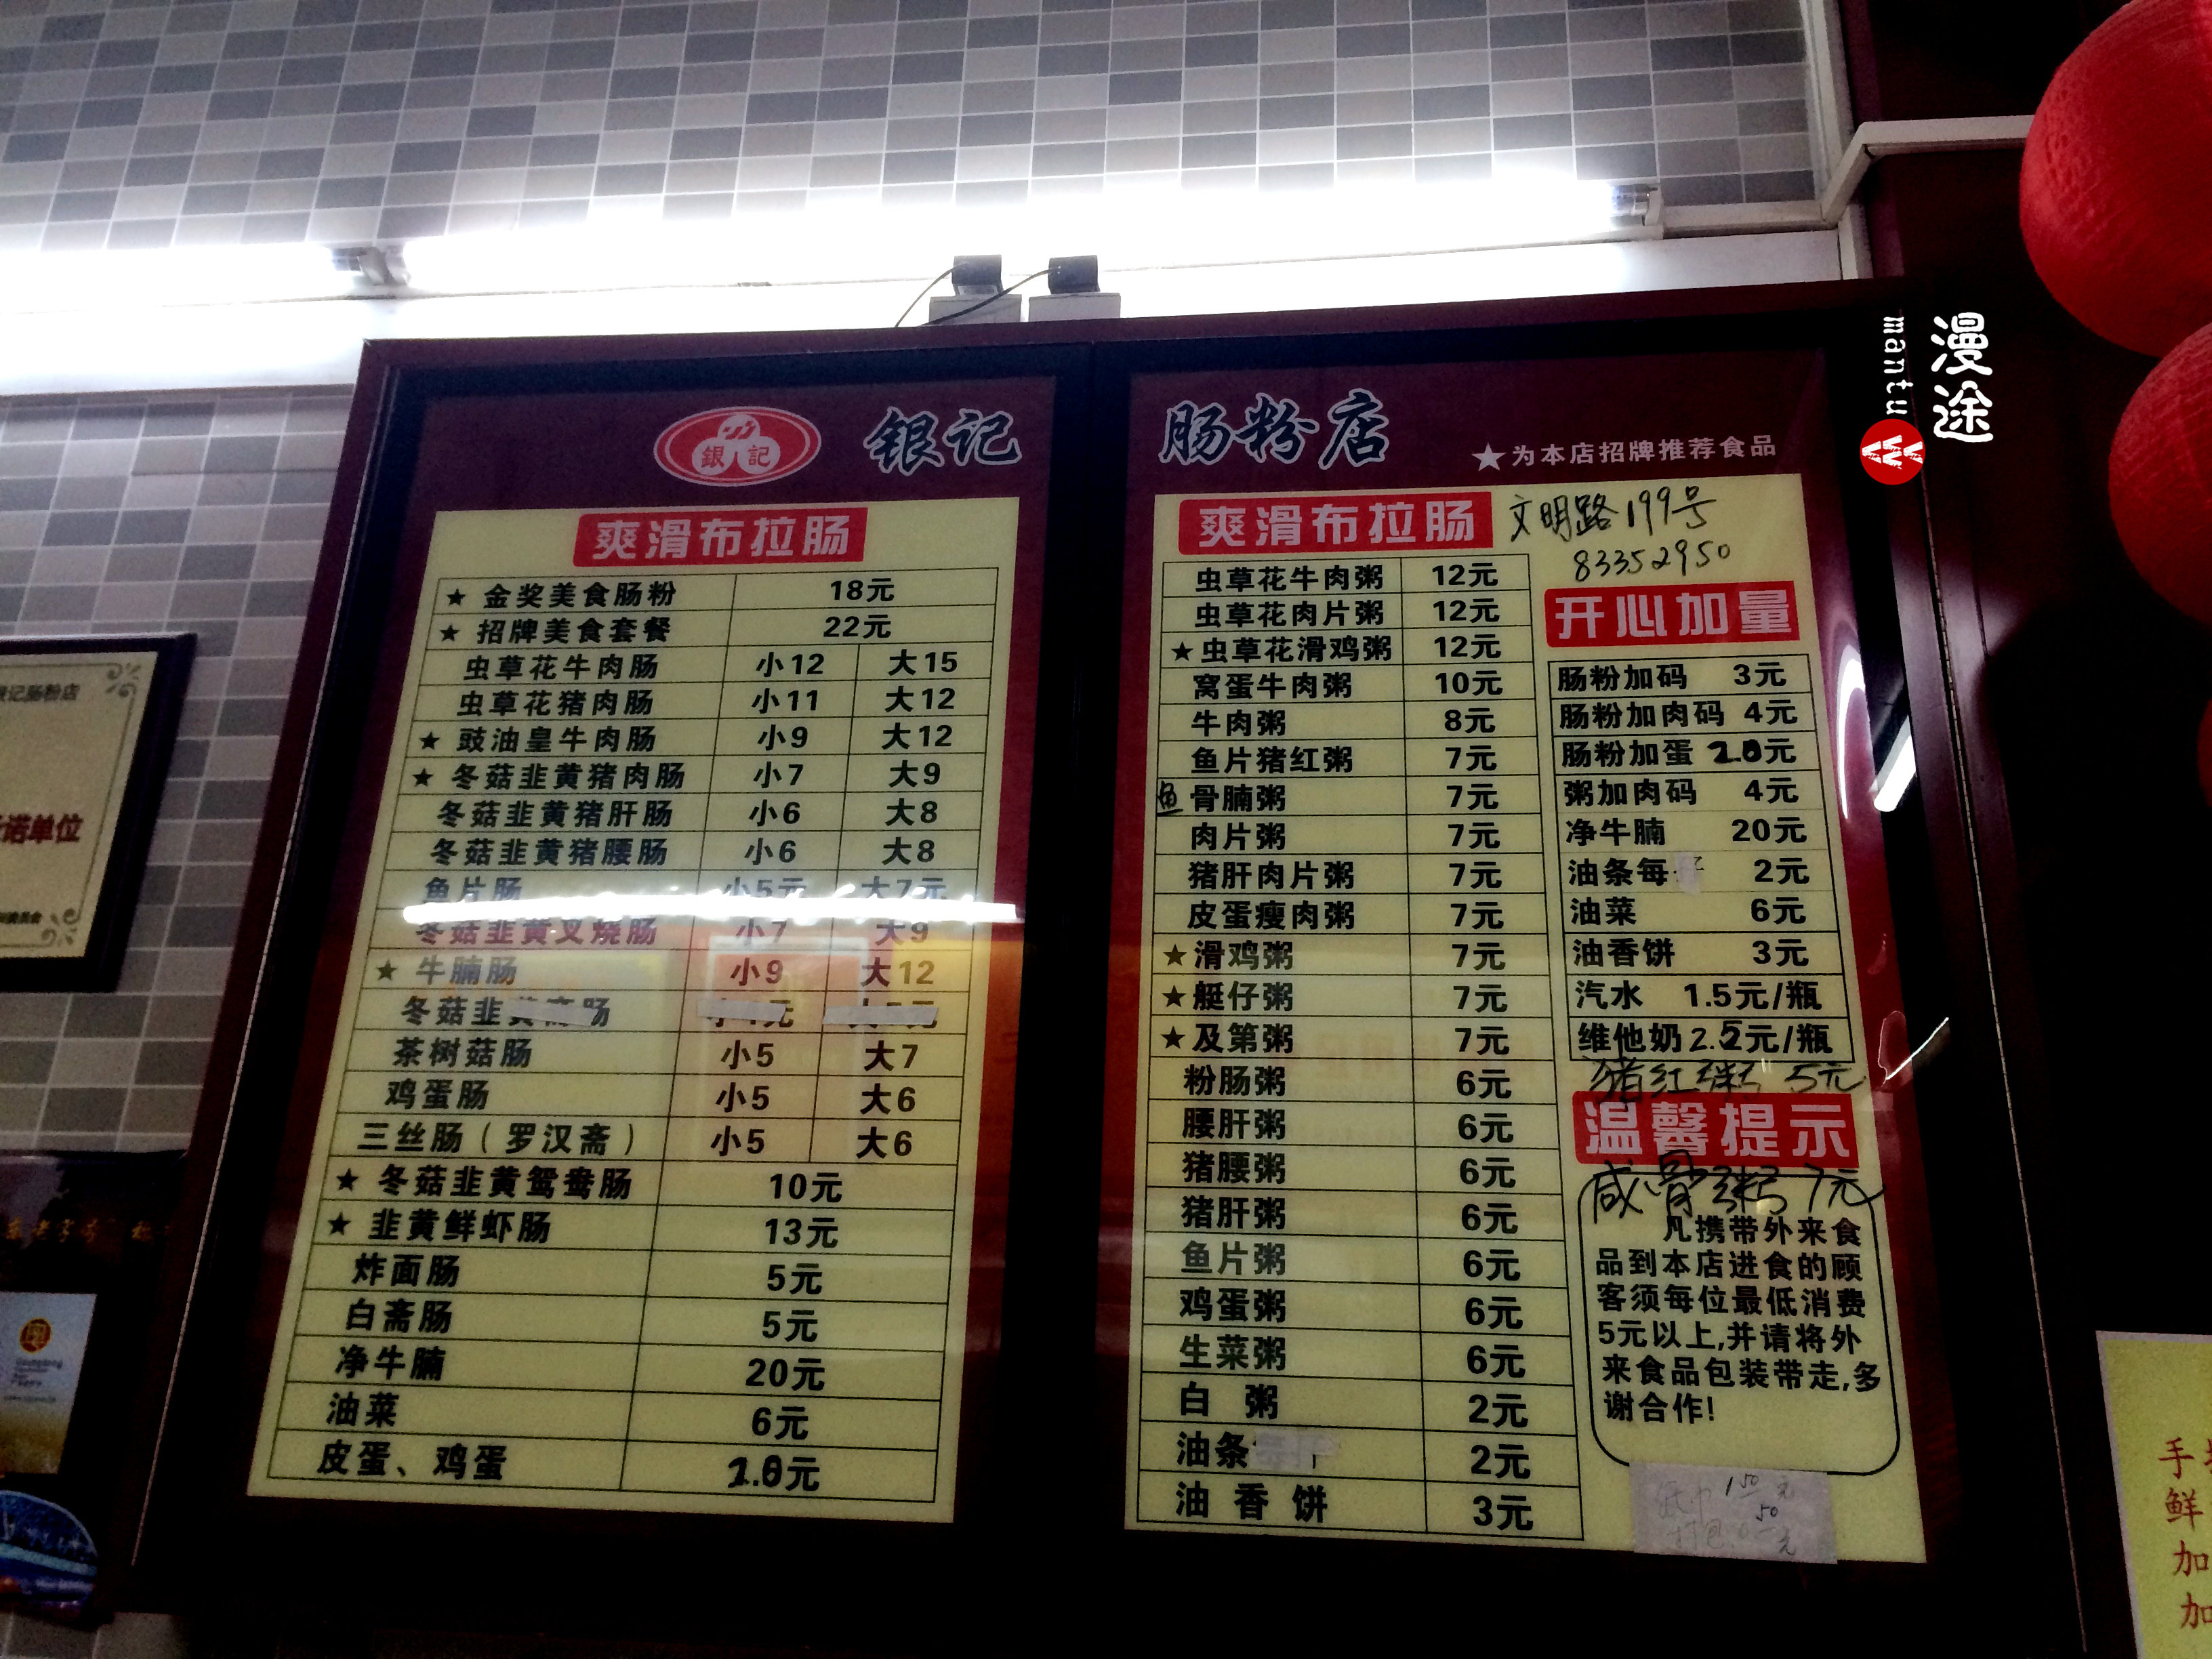 銀記
银记
肠粉店
★为本店招牌推荐食品
漫途
mantu
W
爽滑布拉肠
★ 金奖美食肠粉 18元
★ 招牌美食套餐 22元
虫草花牛肉肠 小12 大15
虫草花猪肉肠 小11 大12
★ 豉油皇牛肉肠 小9 大12
★ 冬菇韭黄猪肉肠 小7 大9
冬菇韭黄猪肝肠 小6 大8
冬菇韭黄猪腰肠 小6 大8
鱼片肠 小5元 大7元
冬菇韭黄叉烧肠 小7 大9
★ 牛腩肠 小9 大12
冬菇韭黄斋肠
茶树菇肠 小5 大7
鸡蛋肠 小5 大6
三丝肠（罗汉斋） 小5 大6
★ 冬菇韭黄鸳鸯肠 10元
★ 韭黄鲜虾肠 13元
炸面肠 5元
白斋肠 5元
净牛腩 20元
油菜 6元
皮蛋、鸡蛋 2.0元
爽滑布拉肠
虫草花牛肉粥 12元
虫草花肉片粥 12元
★虫草花滑鸡粥 12元
窝蛋牛肉粥 10元
牛肉粥 8元
鱼片猪红粥 7元
鱼骨腩粥 7元
肉片粥 7元
猪肝肉片粥 7元
皮蛋瘦肉粥 7元
★滑鸡粥 7元
★艇仔粥 7元
★及第粥 7元
粉肠粥 6元
腰肝粥 6元
猪腰粥 6元
猪肝粥 6元
鱼片粥 6元
鸡蛋粥 6元
生菜粥 6元
白 粥 2元
油条 2元
油香饼 3元
文明路199号
83352950
开心加量
肠粉加码 3元
肠粉加肉码 4元
肠粉加蛋 2.0元
粥加肉码 4元
净牛腩 20元
油条每 2元
油菜 6元
油香饼 3元
汽水 1.5元/瓶
维他奶 2.5元/瓶
猪红粥 5元
温馨提示
咸骨粥 7元
凡携带外来食
品到本店进食的顾
客须每位最低消费
5元以上,并请将外
来食品包装带走,多
谢合作!
纸巾 1.50元
打包 0.50元
银记肠粉店
诺单位
手
鲜
加
加